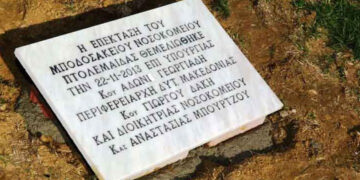 Η ΕΠΕΚΤΑΣΗ ΤΟΥ
ΜΠΟΔΟΣΑΚΕΙΟΥ ΝΟΣΟΚΟΜΕΙΟΥ
ΠΤΟΛΕΜΑΙΔΑΣ ΘΕΜΕΛΙΩΘΗΚΕ
ΤΗΝ 22-11-2013 ΕΠΙ ΥΠΟΥΡΓΙΑΣ
Κου ΑΔΩΝΙ ΓΕΩΡΓΙΑΔΗ
ΠΕΡΙΦΕΡΕΙΑΡΧΗ ΔΥΤ. ΜΑΚΕΔΟΝΙΑΣ
Κου ΓΙΩΡΓΟΥ ΔΑΚΗ
ΚΑΙ ΔΙΟΙΚΗΤΡΙΑΣ ΝΟΣΟΚΟΜΕΙΟΥ
Κας ΑΝΑΣΤΑΣΙΑΣ ΜΠΟΥΡΤΖΟΥ